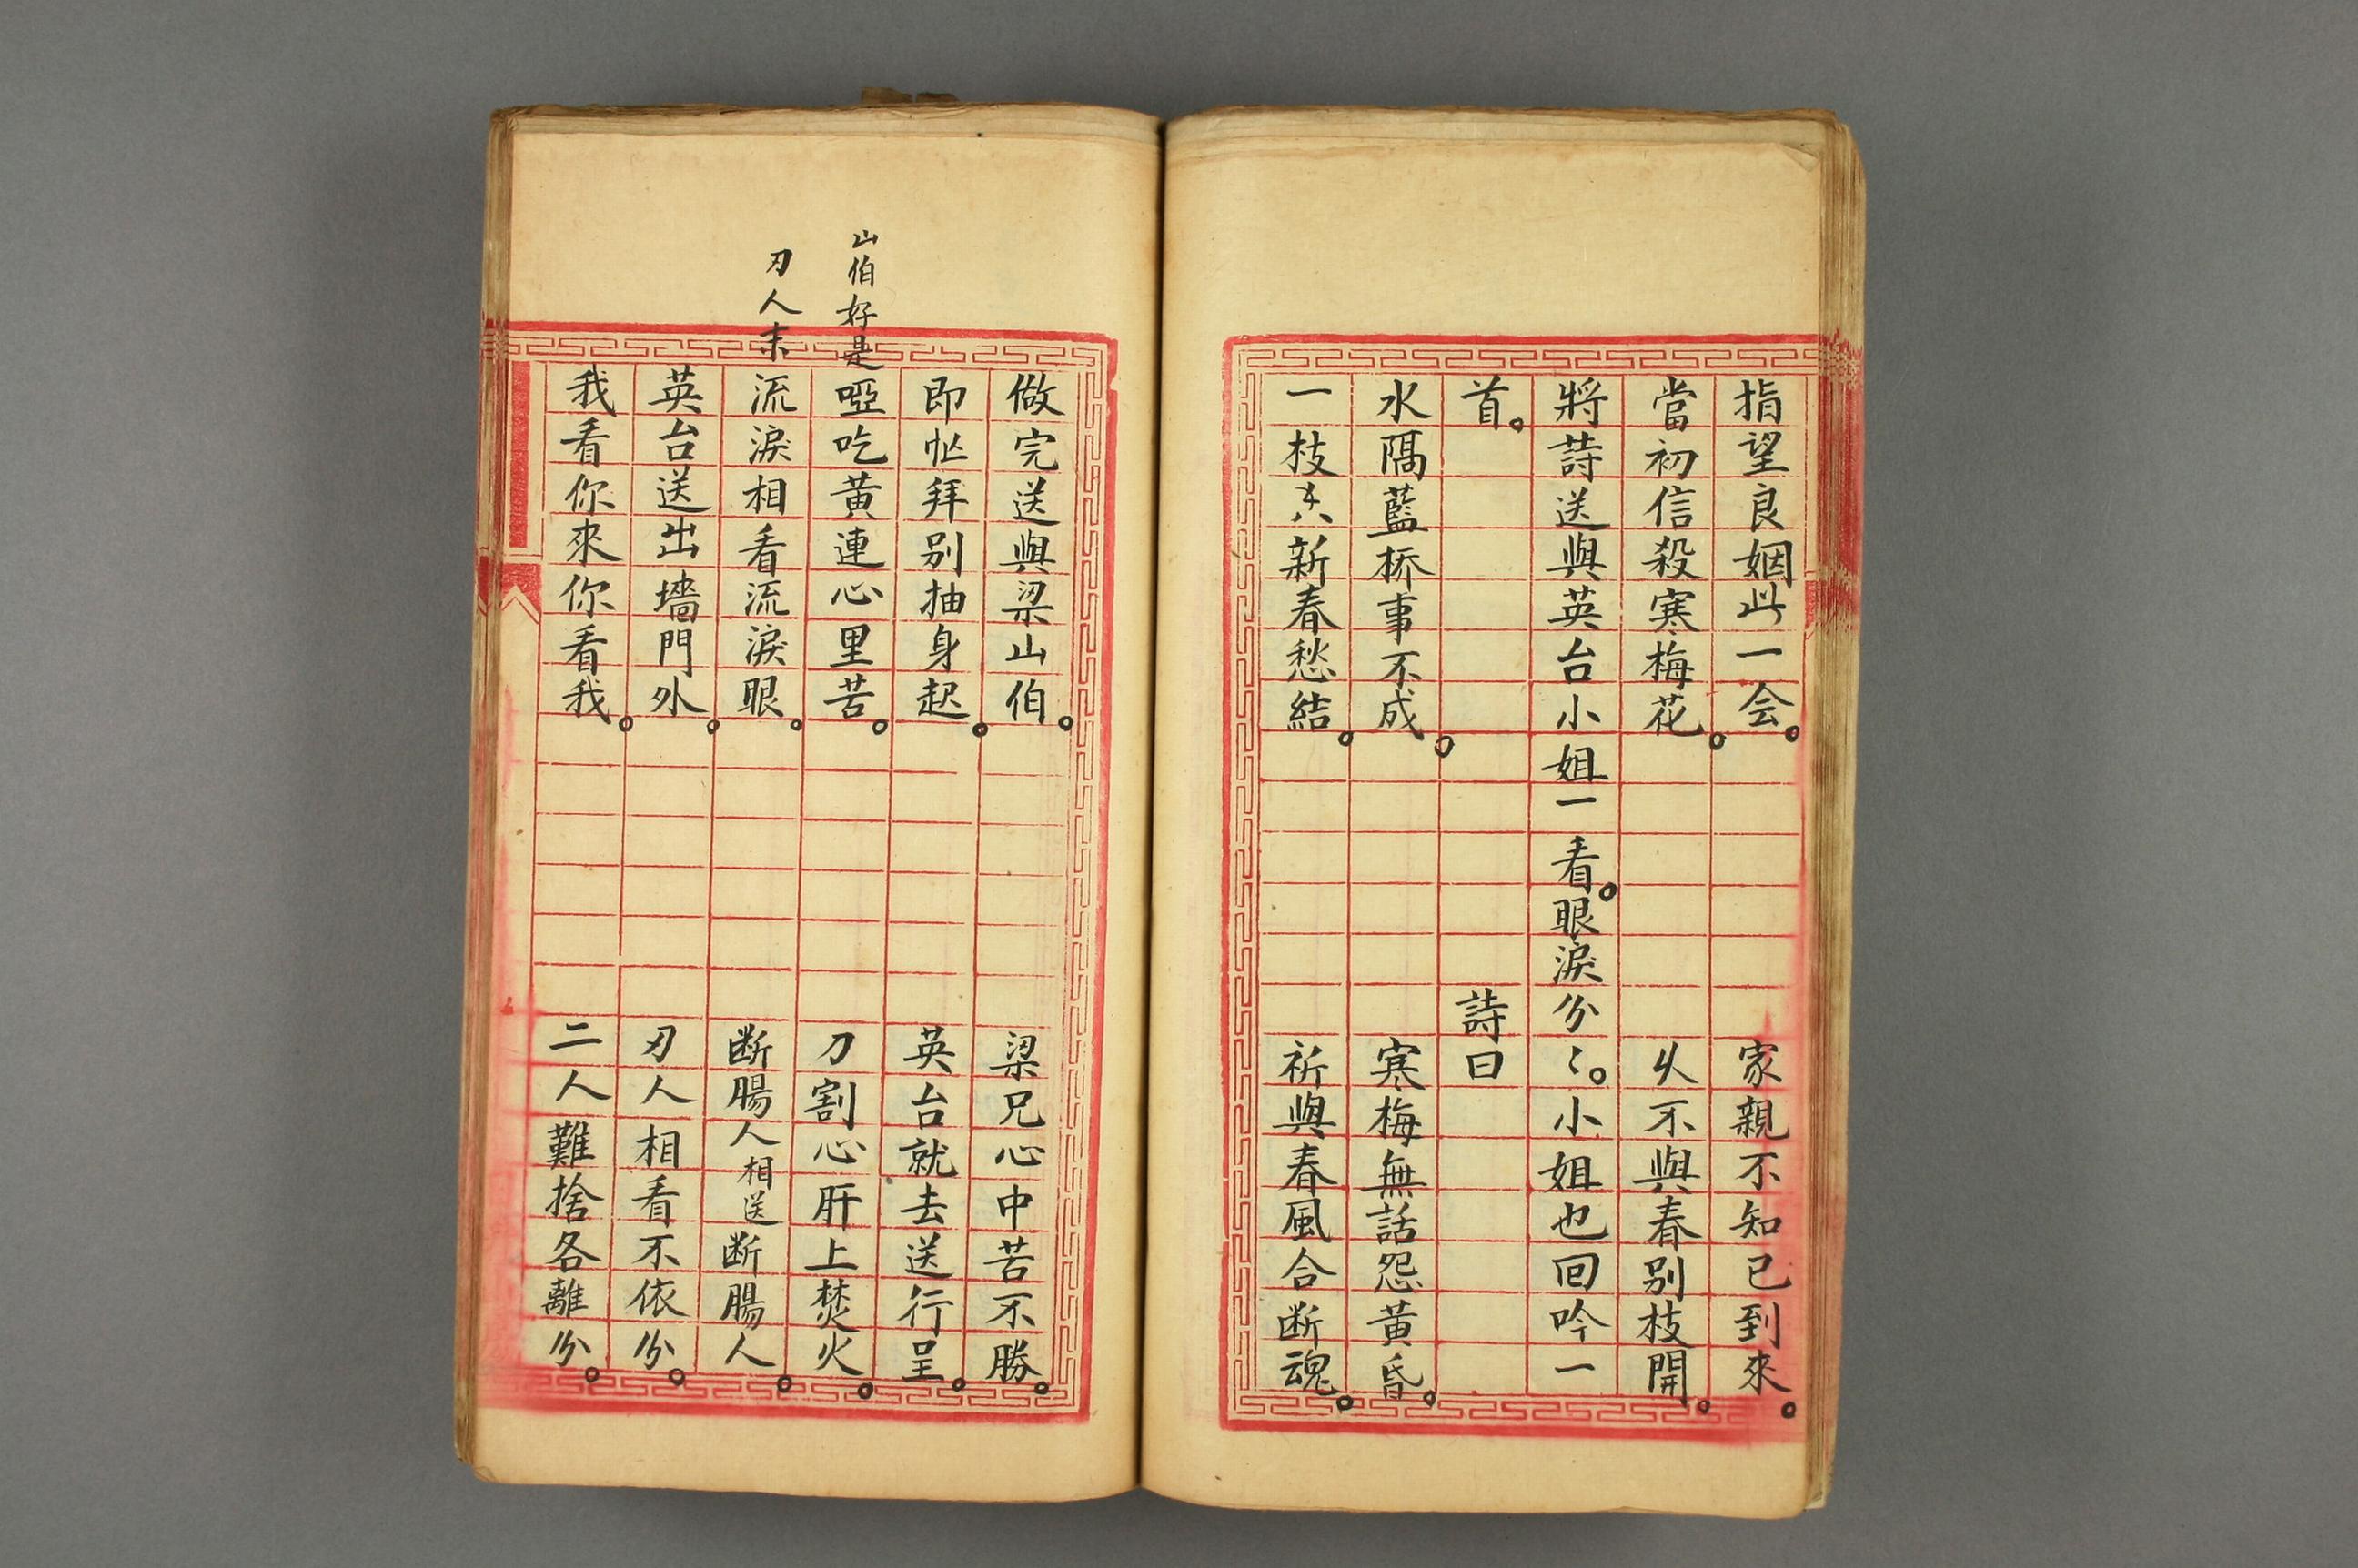 指望良姻此一会。家親不知已到來。
當初信殺寒梅花。不與春别枝開。
將詩送與英台小姐一看。眼淚分〻。小姐也回吟一
首。詩曰
水隔藍桥事不成。寒梅無話怨黄昏。
一枝新春愁結。祈與春風合断魂。
做完送與梁山伯。梁兄心中苦不勝。
即忙拜别抽身起。英台就去送行呈。
山伯好是啞吃黄連心里苦。刀割心肝上焚火。
刃人末流淚相看流淚眼。断腸人相送断腸人。
英台送出墻門外。刃人相看不依分。
我看你來你看我。二人難捨各離分。